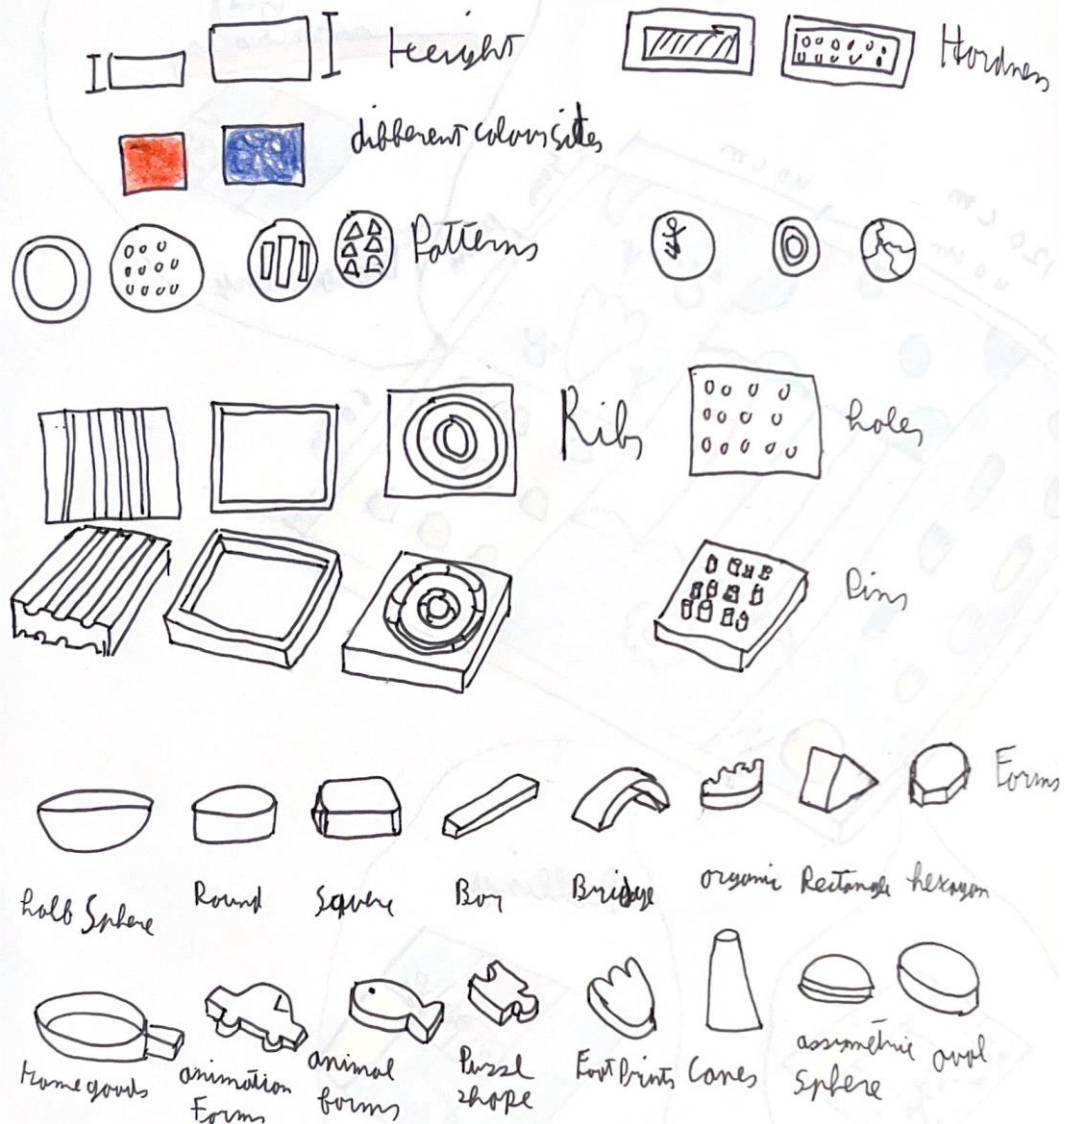 Height
Hardness
different colours sites
Patterns
Ribs
holes
Pins
Forms
half Sphere
Round
Square
Box
Bridge
organic
Rectangle
hexagon
Home goods
animation
Forms
animal
forms
Puzzl
shape
Foot Prints
Cones
assymetric
Sphere
oval